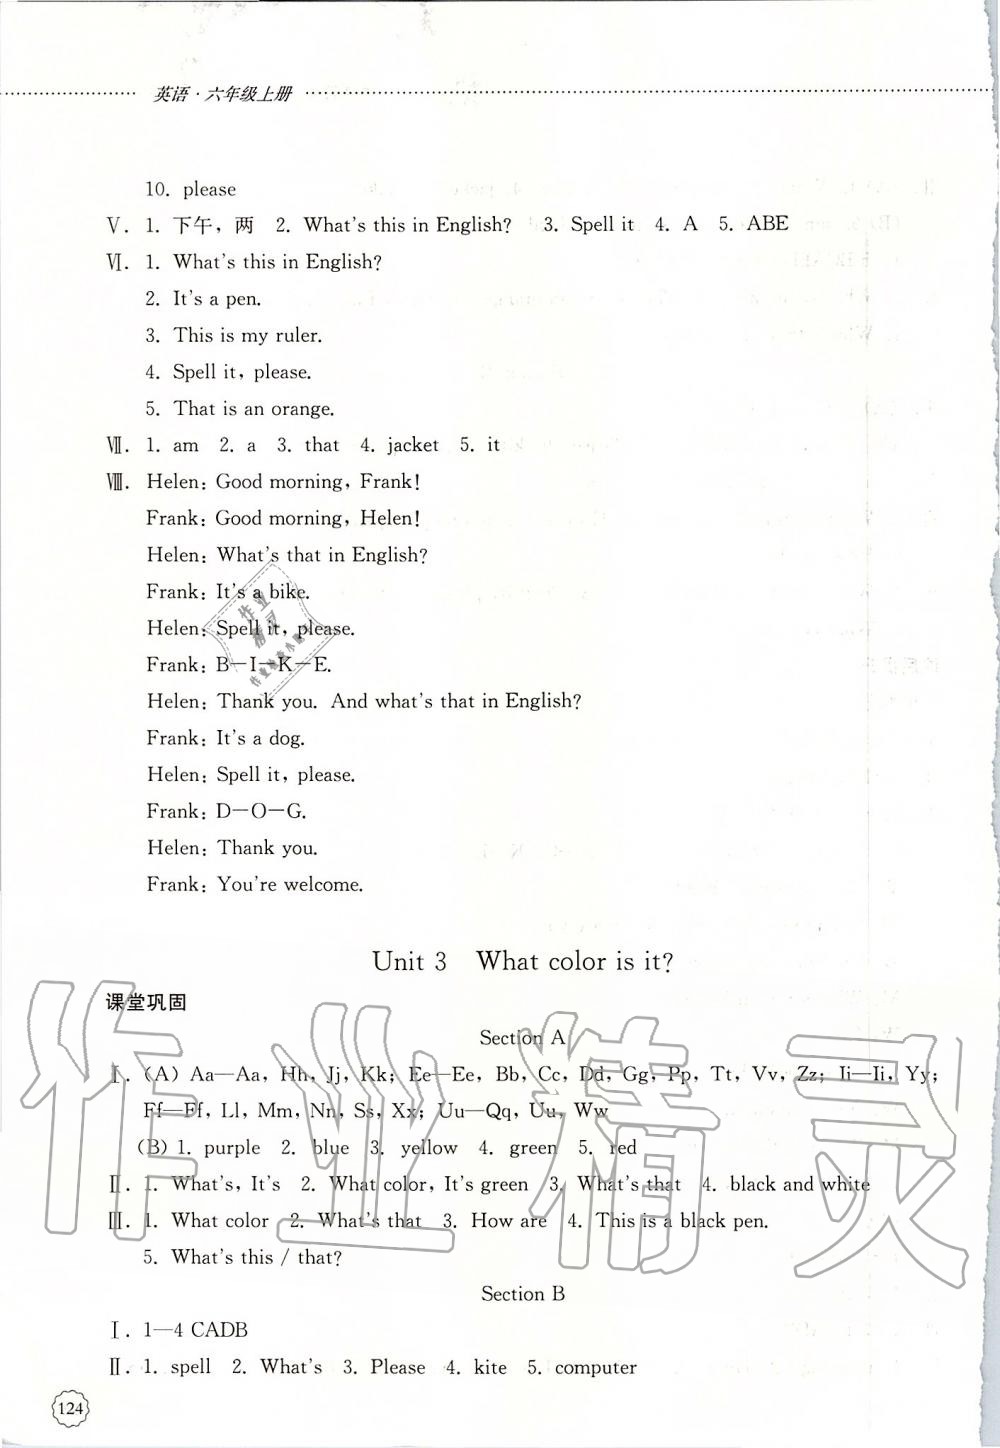 英语·六年级上册
10. please
Ⅴ. 1. 下午，两 2. What's this in English? 3. Spell it 4. A 5. ABE
Ⅵ. 1. What's this in English?
2. It's a pen.
3. This is my ruler.
4. Spell it, please.
5. That is an orange.
Ⅶ. 1. am 2. a 3. that 4. jacket 5. it
Ⅷ. Helen: Good morning, Frank!
Frank: Good morning, Helen!
Helen: What's that in English?
Frank: It's a bike.
Helen: Spell it, please.
Frank: B—I—K—E.
Helen: Thank you. And what's that in English?
Frank: It's a dog.
Helen: Spell it, please.
Frank: D—O—G.
Helen: Thank you.
Frank: You're welcome.
Unit 3 What color is it?
课堂巩固
Section A
Ⅰ. (A) Aa—Aa, Hh, Jj, Kk; Ee—Ee, Bb, Cc, Dd, Gg, Pp, Tt, Vv, Zz; Ii—Ii, Yy;
Ff—Ff, Ll, Mm, Nn, Ss, Xx; Uu—Qq, Uu, Ww
(B) 1. purple 2. blue 3. yellow 4. green 5. red
Ⅱ. 1. What's, It's 2. What color, It's green 3. What's that 4. black and white
Ⅲ. 1. What color 2. What's that 3. How are 4. This is a black pen.
5. What's this / that?
Section B
Ⅰ. 1—4 CADB
Ⅱ. 1. spell 2. What's 3. Please 4. kite 5. computer
124
作业精灵